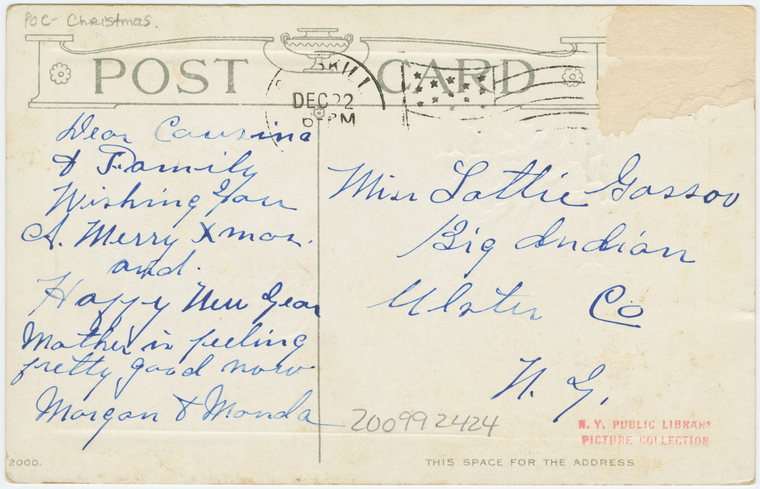 PoC- Christmas.
POST CARD
DEC 22
PM
Dear Cousins
& Family
Wishing You
A. Merry Xmas.
and.
Happy New Year
Mother is feeling
pretty good now
Morgan & Monda
Miss Lottie
Big Indian
Ulster Co
N. Y.
200992424
N. Y. PUBLIC LIBRARY
PICTURE COLLECTION
2000.
THIS SPACE FOR THE ADDRESS